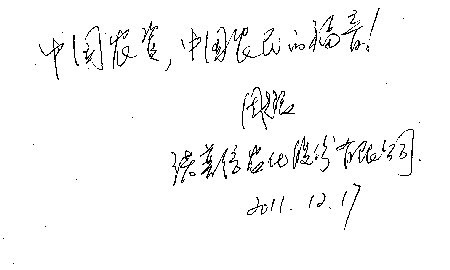 中国农资,中国农民的福音!
诺普信农化股份有限公司.
2011.12.17